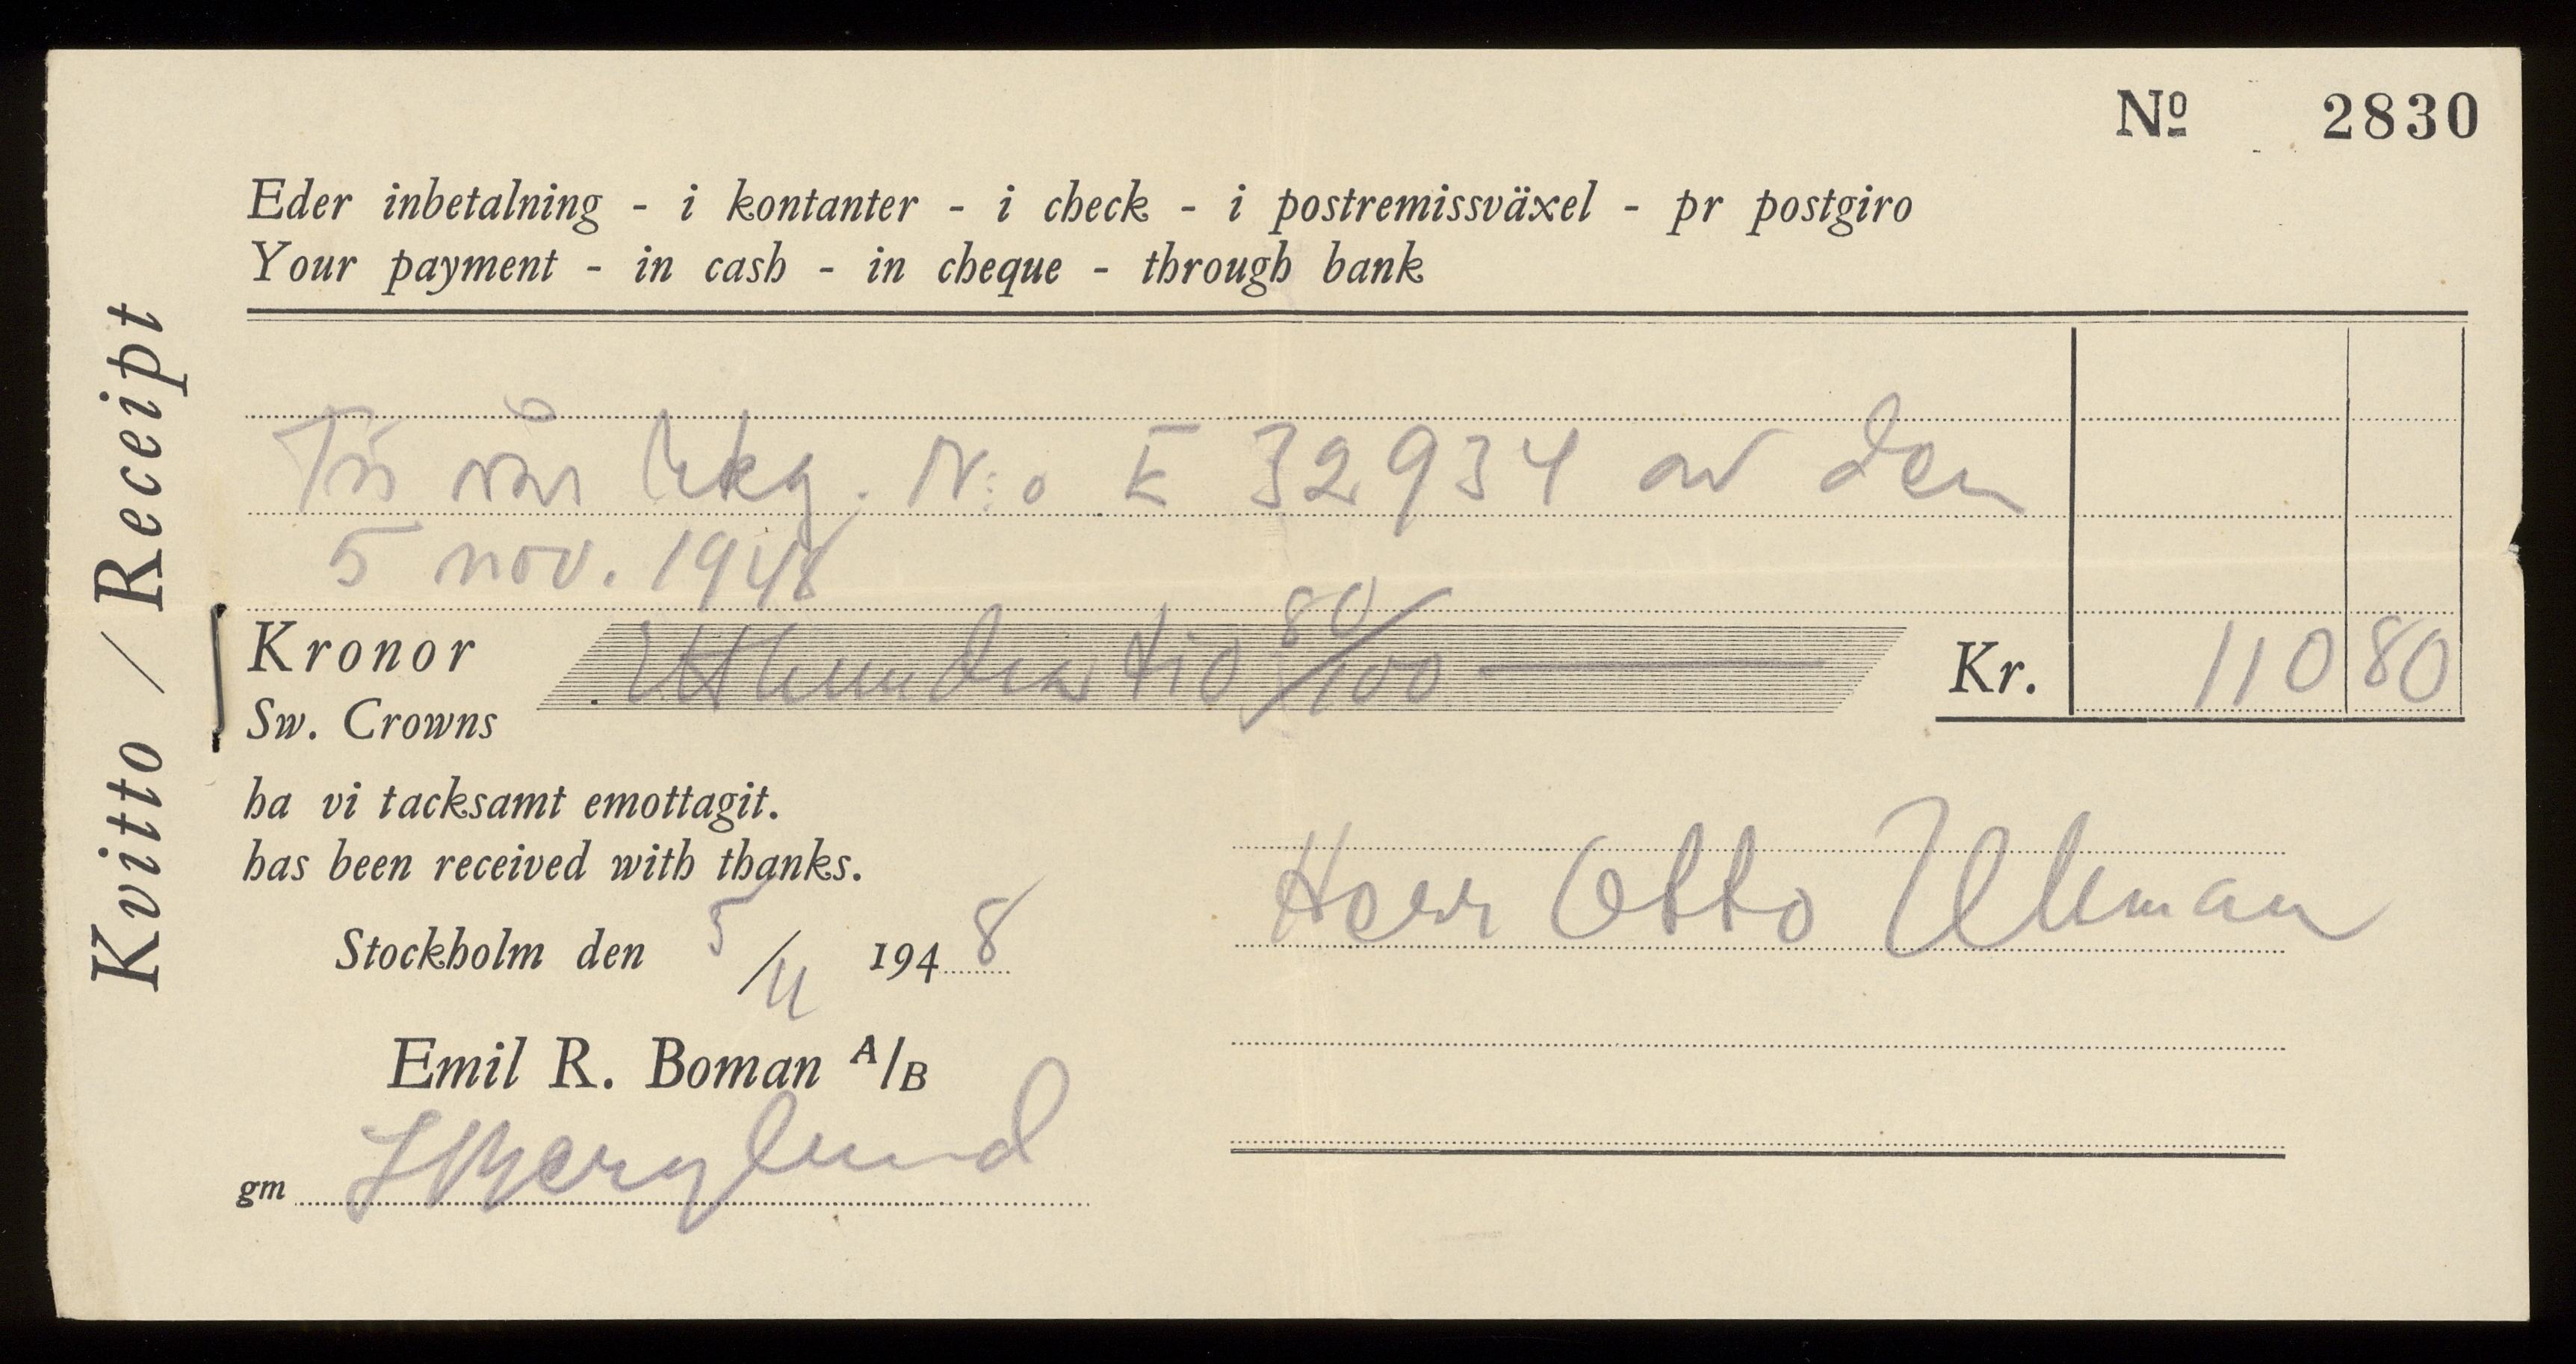 Nº 2830
Kvitto / Receipt
Eder inbetalning - i kontanter - i check - i postremissväxel - pr postgiro
Your payment - in cash - in cheque - through bank
vår N:o E 32934 av den
5 nov. 1948
Kronor Etthundratio 80/100
Kr. 110 80
Sw. Crowns
ha vi tacksamt emottagit.
has been received with thanks.
Herr Otto Ullman
Stockholm den 5/11 1948
Emil R. Boman A/B
gm Berglund